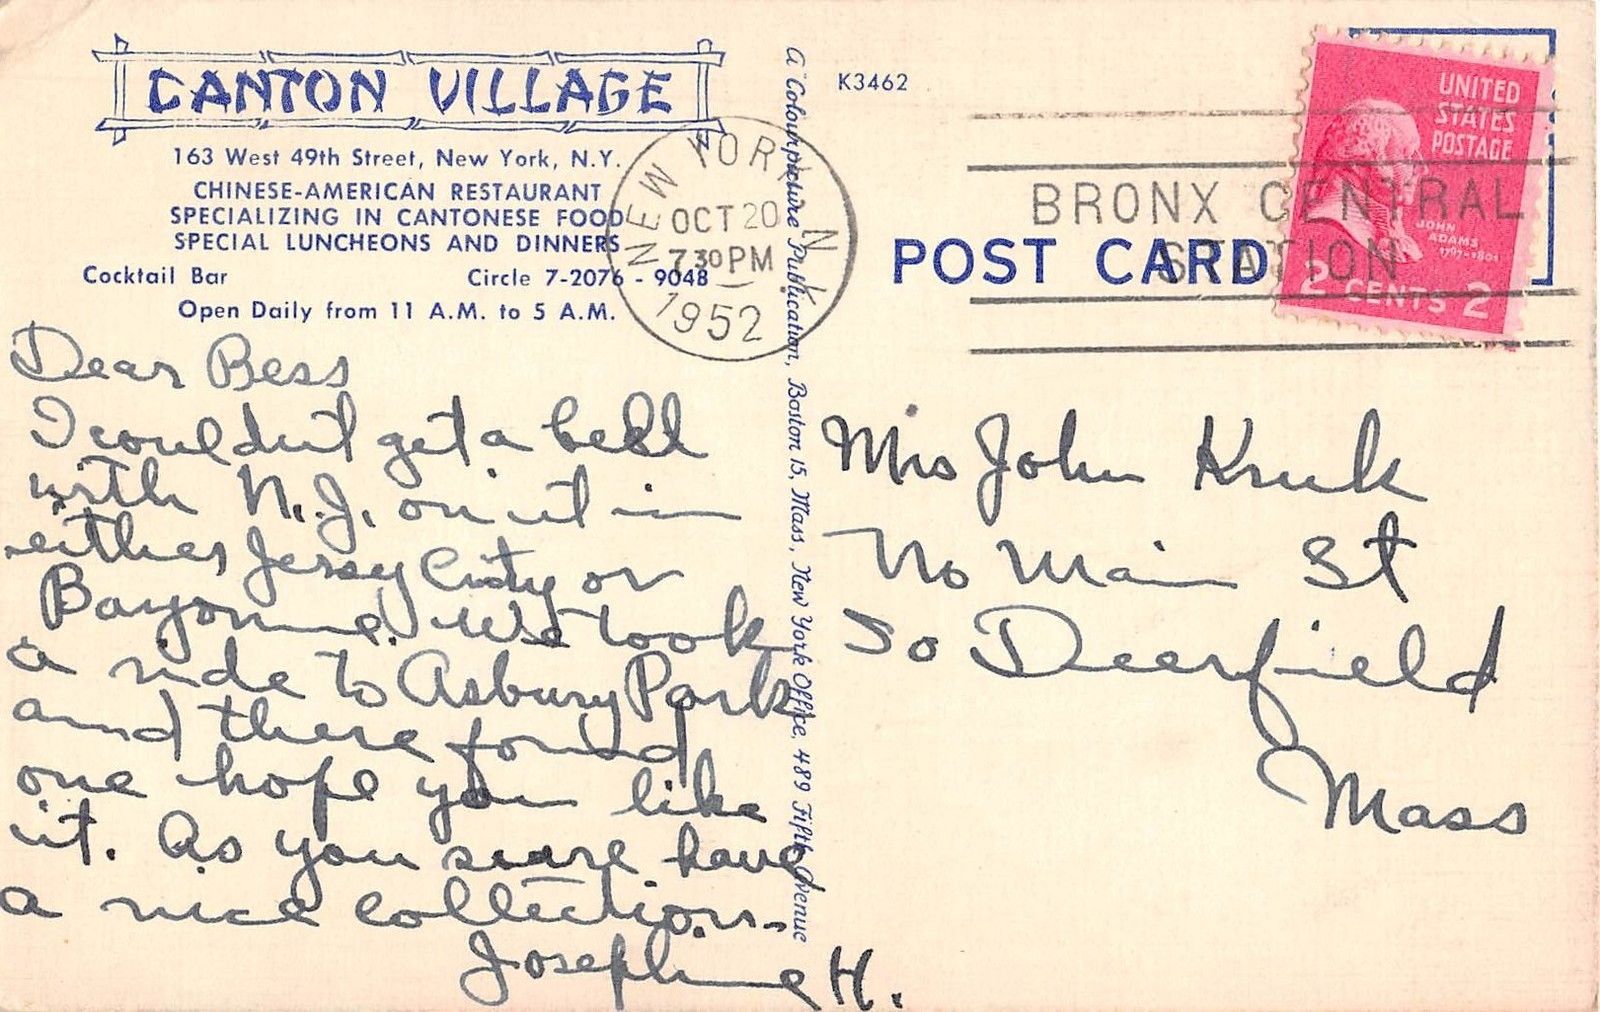 CANTON VILLAGE
163 West 49th Street, New York, N.Y.
CHINESE-AMERICAN RESTAURANT
SPECIALIZING IN CANTONESE FOOD
SPECIAL LUNCHEONS AND DINNERS
Cocktail Bar Circle 7-2076 - 9048
Open Daily from 11 A.M. to 5 A.M.
Dear Bess
I couldn't get a bell
with N.J. on it in
either Jersey City or
Bayonne. We took
a ride to Asbury Park
and there found
one hope you like
it. As you sure have
a nice collection.
Josephine H.
A Colourpicture Publication, Boston 15, Mass., New York Office, 489 Fifth Avenue
K3462
NEW YORK N
OCT 20
7 30 PM
1952
BRONX CENTRAL
STATION
POST CARD
UNITED
STATES
POSTAGE
JOHN
ADAMS
1797-1801
2 CENTS 2
Mrs John Kruk
No Main St
So Deerfield
Mass